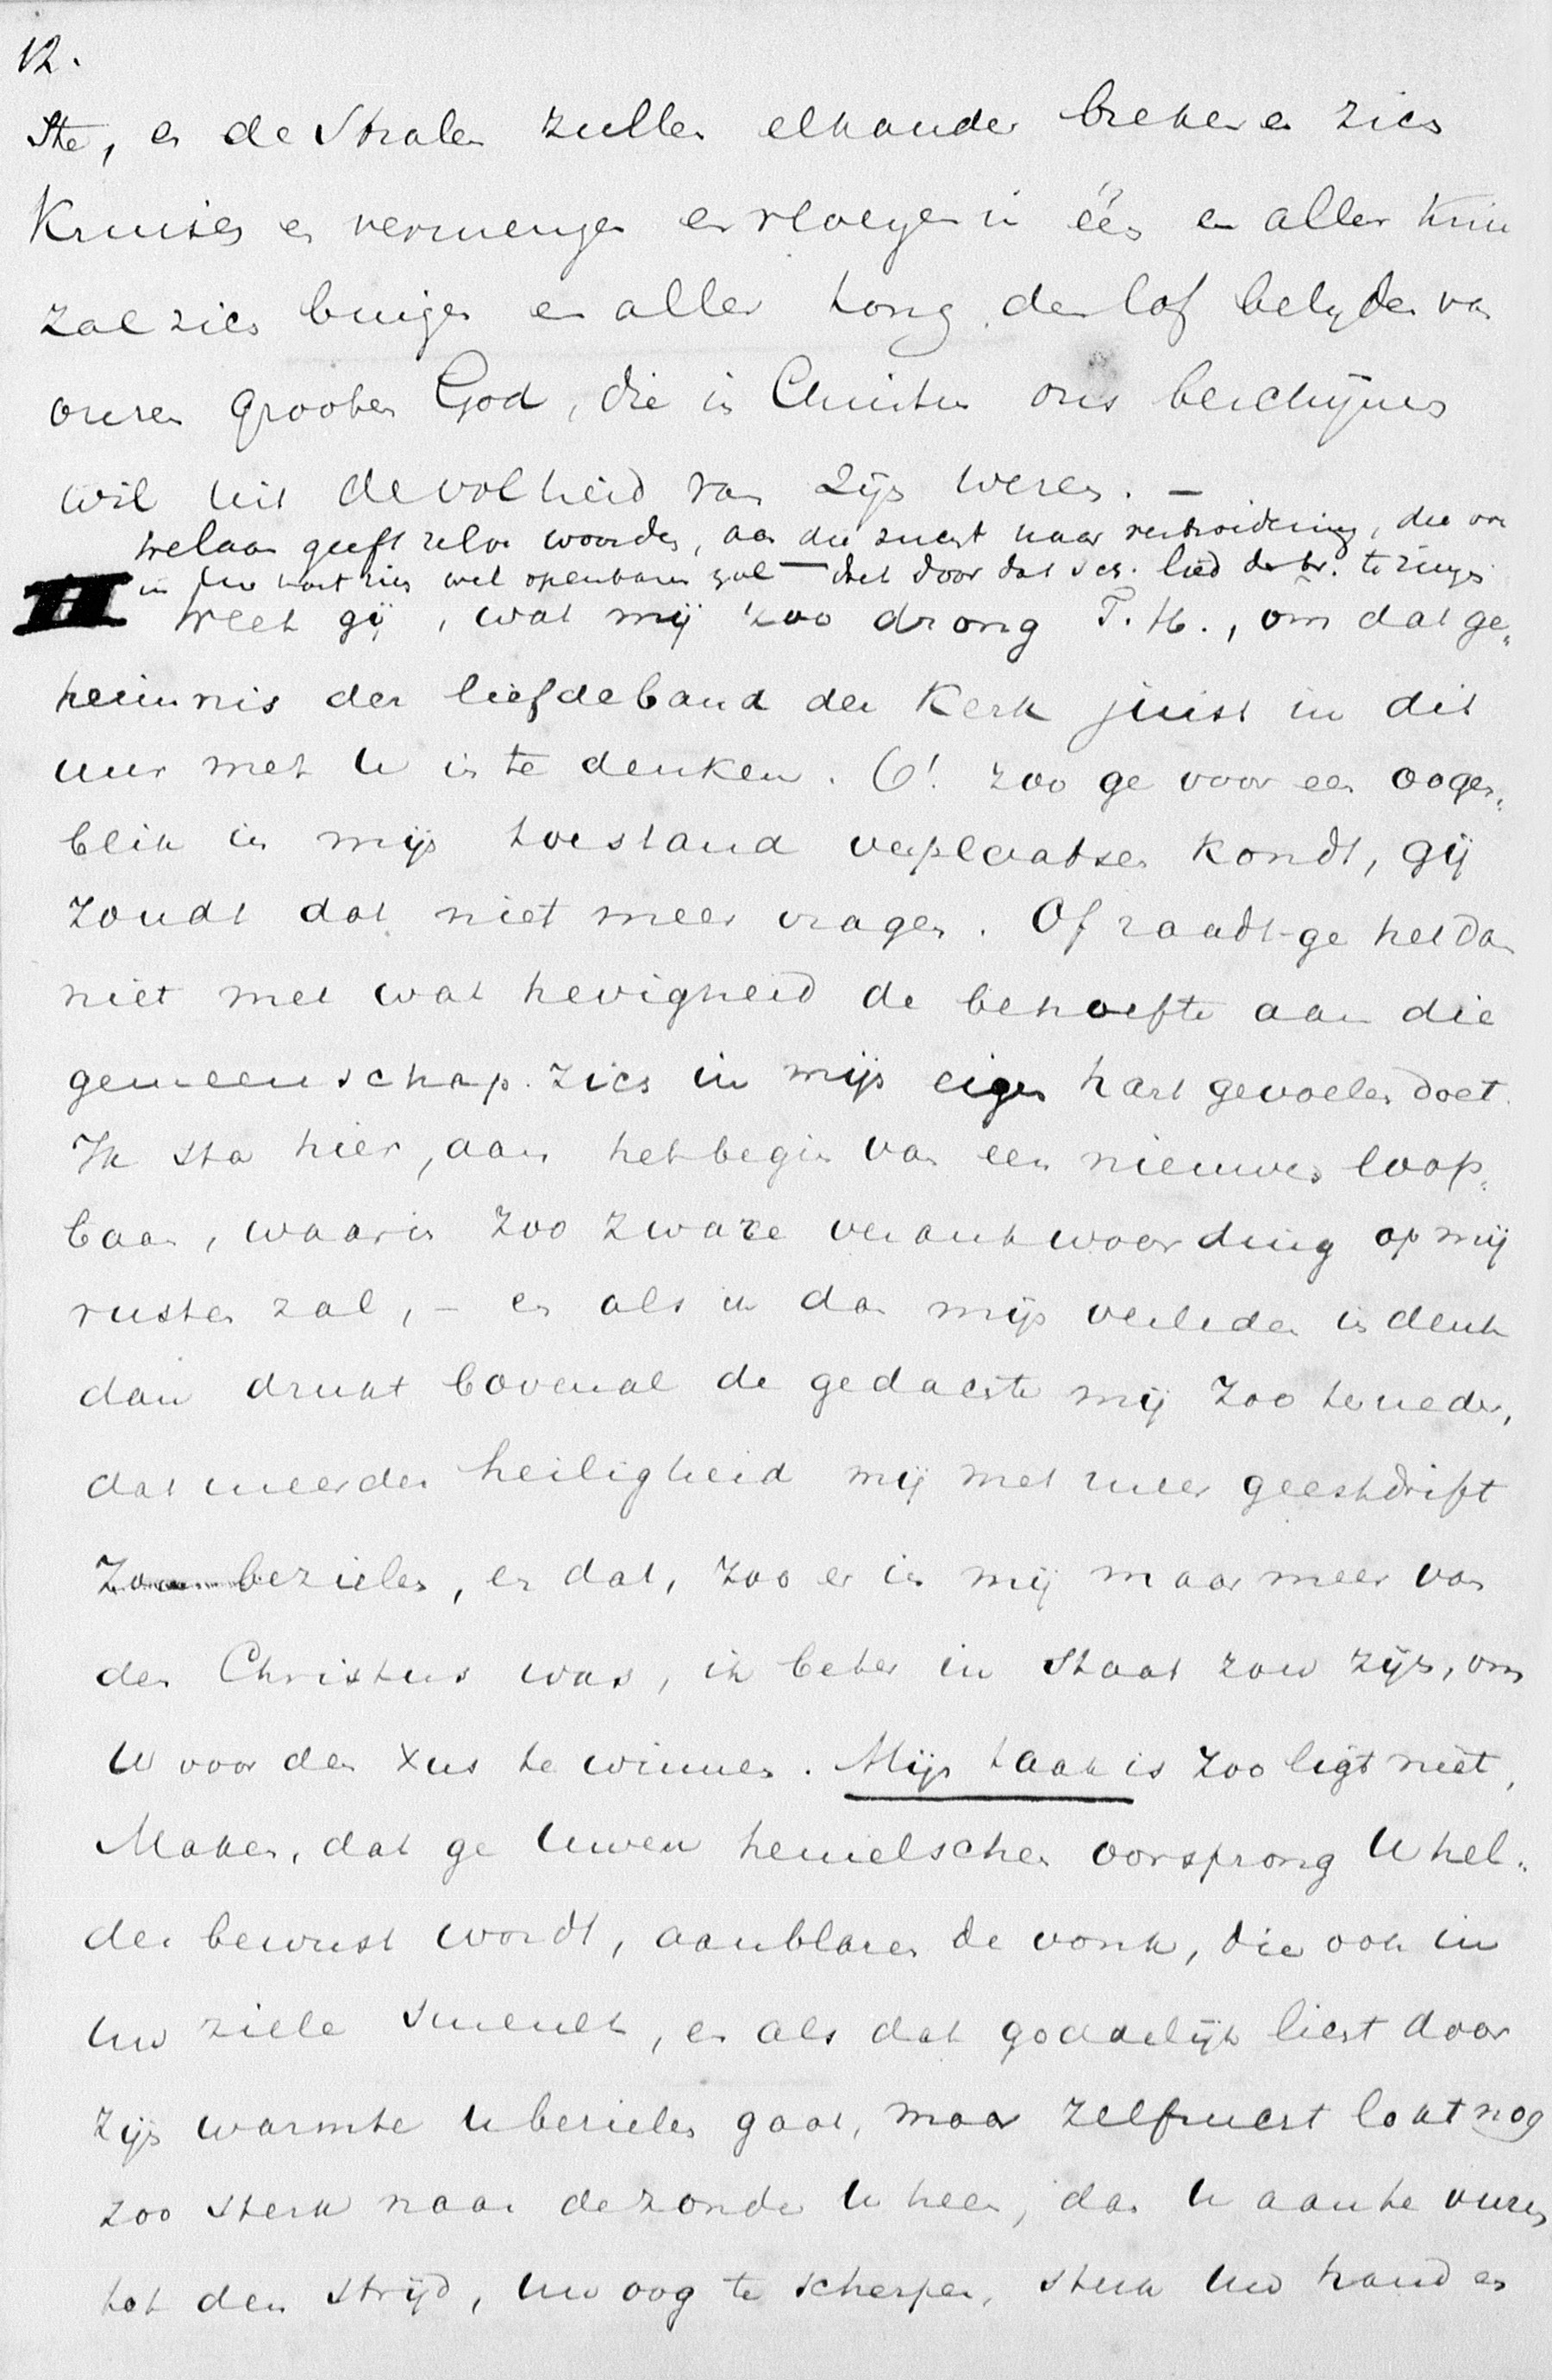 12.
ste, en de stralen zullen elkander breken en zich
kruisen en vermengen en vloeyen in één en aller knie
zal zich buigen en aller tong den lof belyden van
onzen grooten God, die in Christus ons beschijnen
wil uit de volheid van Zijn wezen. –
Welaan geeft zelve woorden, aan die zucht naar verbroidering, die ook
in Uw hart zich wel openbaren zal – door dat lied te zingen
II Weet gij, wat mij zoo drong T. H., om dat ge„
heimnis der liefdeband der Kerk juist in dit
uur met U in te denken. O! zoo ge voor een oogen„
blik in mijn toestand verplaatsen kondt, gij
zoudt dat niet meer vragen. Of raadt-ge het dan
niet met wat hevigheid de behoefte aan die
gemeenschap zich in mijn eigen hart gevoelen doet.
Ik sta hier, aan het begin van een nieuwen loop„
baan, waarin zoo zware verantwoording op mij
rusten zal, – en als ik dan mijn verleden in denk
dan drukt bovenal de gedachte mij zoo terneder,
dat meerder heiligheid mij met meer geestdrift
zou bezielen, en dat, zoo er in mij maar meer van
den Christus was, ik beter in staat zou zijn, om
U voor den Xus te winnen. Mijn taak is zoo ligt niet,
Maken, dat ge Uwen hemelschen oorsprong U hel„
der bewust wordt, aanblazen de vonk, die ook in
Uw ziele smeult, en als dat goddelijk licht door
zijn warmte U bezielen gaat, maar zelfzucht lokt nog
zoo sterk naar de zonde U heen, dan U aan te vuren
tot den strijd, Uw oog te scherpen, sterk Uw hand en